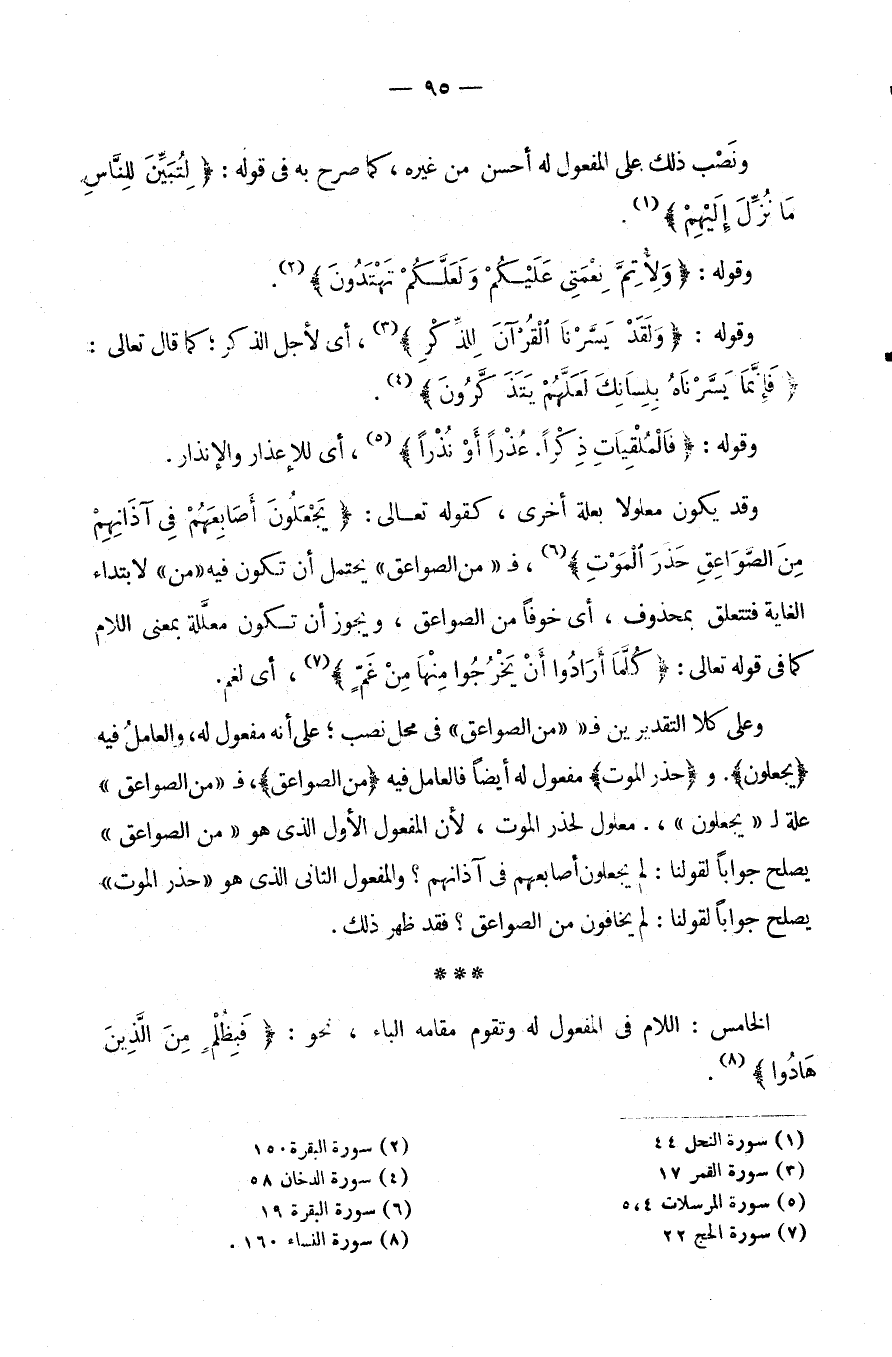 — ٩٥ —
ونَصْب ذلك على المفعول له أحسن من غيره ، كما صرح به فى قوله : ﴿ لِتُبَيِّنَ لِلنَّاسِ
مَا نُزِّلَ إِلَيْهِمْ ﴾ (١) .
وقوله : ﴿ وَلِأُتِمَّ نِعْمَتِى عَلَيْكُمْ وَلَعَلَّكُمْ تَهْتَدُونَ ﴾ (٢) .
وقوله : ﴿ وَلَقَدْ يَسَّرْنَا الْقُرْآنَ لِلذِّكْرِ ﴾ (٣) ، أى لأجل الذكر ؛ كما قال تعالى :
﴿ فَإِنَّمَا يَسَّرْنَاهُ بِلِسَانِكَ لَعَلَّهُمْ يَتَذَكَّرُونَ ﴾ (٤) .
وقوله : ﴿ فَالْمُلْقِيَاتِ ذِكْراً. عُذْراً أَوْ نُذْراً ﴾ (٥) ، أى للإعذار والإنذار .
وقد يكون معلولا بعلة أخرى ، كقوله تعـالى : ﴿ يَجْعَلُونَ أَصَابِعَهُمْ فِى آذَانِهِمْ
مِنَ الصَّوَاعِقِ حَذَرَ الْمَوْتِ ﴾ (٦) ، فـ « من الصواعق» يحتمل أن تكون فيه «من» لابتداء
الغاية فتتعلق بمحذوف ، أى خوفاً من الصواعق ، ويجوز أن تكون معلَّلة بمعنى اللام
كما فى قوله تعالى : ﴿ كُلَّمَا أَرَادُوا أَنْ يَخْرُجُوا مِنْهَا مِنْ غَمٍّ ﴾ (٧) ، أى لغم.
وعلى كلا التقديرين فـ« «من الصواعق» فى محل نصب ؛ على أنه مفعول له، والعاملُ فيه
﴿يجعلون﴾. و ﴿حذر الموت﴾ مفعول له أيضاً فالعامل فيه ﴿من الصواعق﴾، فـ «من الصواعق »
علة لـ « يجعلون » ، . معلول لحذر الموت ، لأن المفعول الأول الذى هو « من الصواعق »
يصلح جواباً لقولنا : لم يجعلون أصابعهم فى آذانهم ؟ والمفعول الثانى الذى هو «حذر الموت»
يصلح جواباً لقولنا : لم يخافون من الصواعق ؟ فقد ظهر ذلك .
***
الخامس : اللام فى المفعول له وتقوم مقامه الباء ، نحو : ﴿ فَبِظُلْمٍ مِنَ الَّذِينَ
هَادُوا ﴾ (٨) .
(١) سورة النحل ٤٤ (٢) سورة البقرة ١٥٠
(٣) سورة القمر ١٧ (٤) سورة الدخان ٥٨
(٥) سورة المرسلات ٥،٤ (٦) سورة البقرة ١٩
(٧) سورة الحج ٢٢ (٨) سورة النساء ١٦٠ .